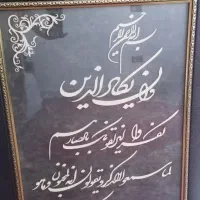 بسم الله الرحمن الرحیم
وان یکاد الذین
کفروا لیزلقونک بابصارهم
لما سمعوا الذکر و یقولون انه لمجنون و ما هو